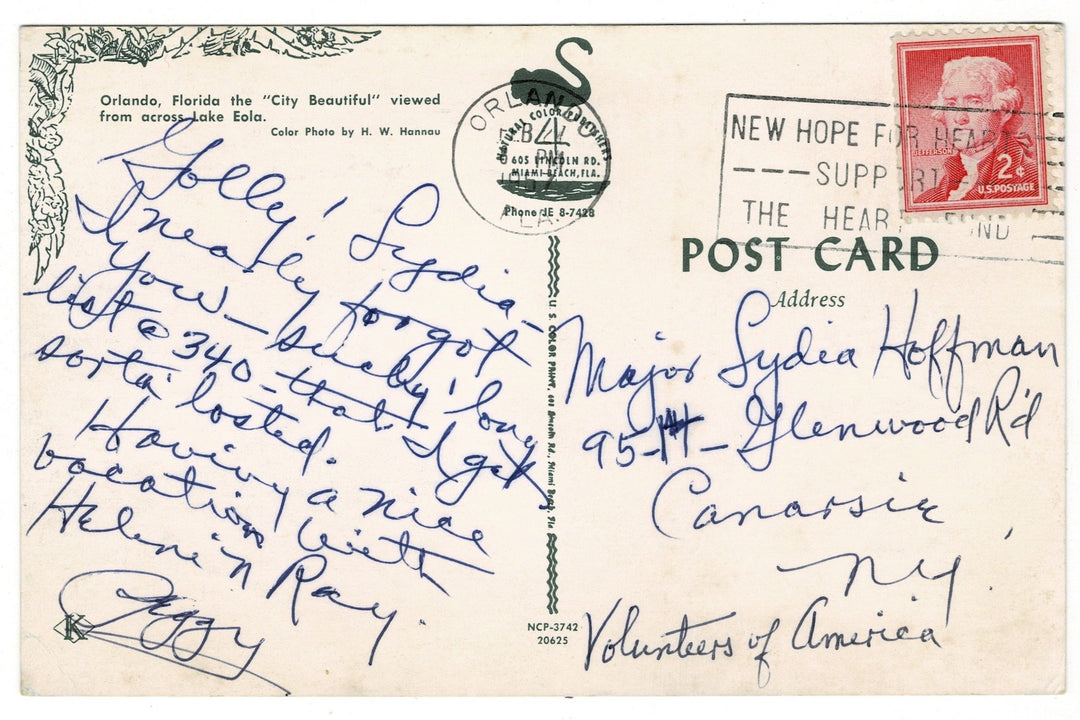 Orlando, Florida the "City Beautiful" viewed
from across Lake Eola.
Color Photo by H. W. Hannau
Golly! Lydia-
I nearly forgot
you - such a long
list @ 340 - that I get
sorta' losted.
Having a nice
vacation with
Helen 'n Ray.
Peggy
K
ORLANDO
FEB 4
PM
1957
FLA.
NATURAL COLOR PUBLISHERS
605 LINCOLN RD.
MIAMI BEACH, FLA.
Phone JE 8-7428
U. S. COLOR PRINT, Miami Beach, Fla
NCP-3742
20625
NEW HOPE FOR HEARTS
SUPPORT
THE HEART FUND
JEFFERSON
2¢
U.S. POSTAGE
POST CARD
Address
Major Lydia Hoffman
95- Glenwood R'd
Canarsie
N.Y.
Volunteers of America